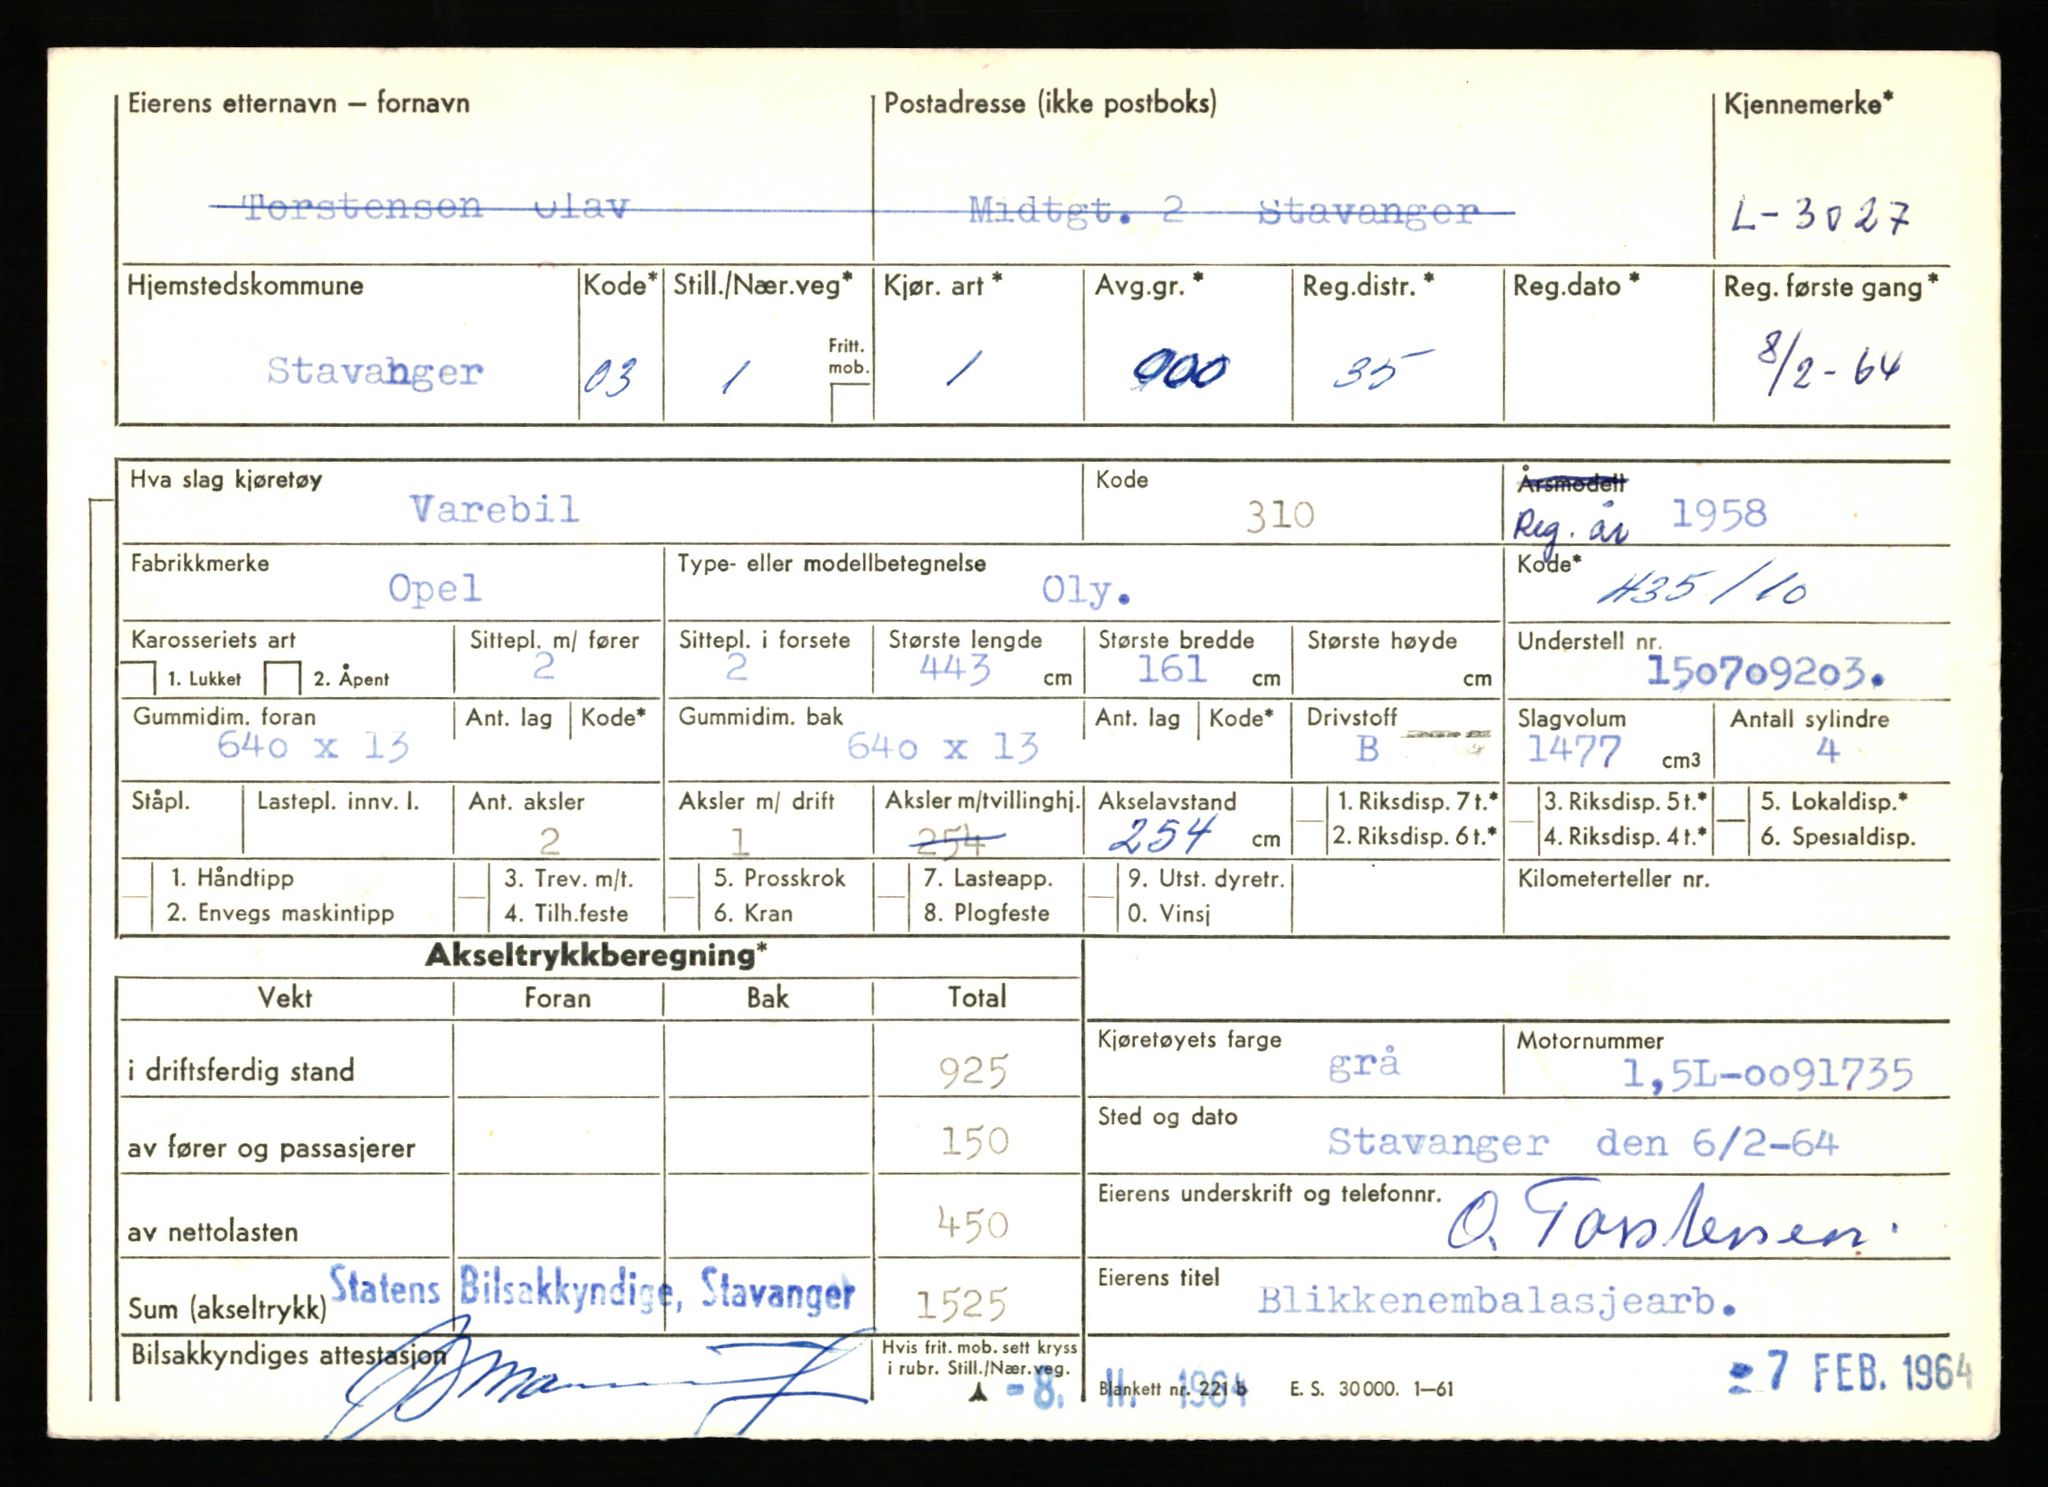 Eierens etternavn – fornavn Postadresse (ikke postboks) Kjennemerke*
Torstensen Olav Midtgt. 2 Stavanger L-3027
Hjemstedskommune Kode* Still./Nær.veg* Kjør. art* Avg.gr.* Reg.distr.* Reg.dato* Reg. første gang*
Fritt. mob.
Stavanger 03 1 1 900 35 8/2-64
Hva slag kjøretøy Kode Årsmodell
Varebil 310 Reg. år 1958
Fabrikkmerke Type- eller modellbetegnelse Kode*
Opel Oly. 435/10
Karosseriets art Sittepl. m/ fører Sittepl. i forsete Største lengde Største bredde Største høyde Understell nr.
1. Lukket 2. Åpent 2 2 443 cm 161 cm cm 150709203.
Gummidim. foran Ant. lag Kode* Gummidim. bak Ant. lag Kode* Drivstoff Slagvolum Antall sylindre
640 x 13 640 x 13 B 1477 cm3 4
Ståpl. Lastepl. innv. l. Ant. aksler Aksler m/ drift Aksler m/tvillinghj. Akselavstand 1. Riksdisp. 7 t.* 3. Riksdisp. 5 t.* 5. Lokaldisp.*
2 1 254 254 cm 2. Riksdisp. 6 t.* 4. Riksdisp. 4 t.* 6. Spesialdisp.
1. Håndtipp 3. Trev. m/t. 5. Prosskrok 7. Lasteapp. 9. Utst. dyretr. Kilometerteller nr.
2. Envegs maskintipp 4. Tilh.feste 6. Kran 8. Plogfeste 0. Vinsj
Akseltrykkberegning*
Vekt Foran Bak Total
Kjøretøyets farge Motornummer
i driftsferdig stand 925 grå 1,5L-0091735
Sted og dato
av fører og passasjerer 150 Stavanger den 6/2-64
Eierens underskrift og telefonnr.
av nettolasten 450 O. Torstensen.
Eierens titel
Sum (akseltrykk) Statens Bilsakkyndige, Stavanger 1525 Blikkenembalasjearb.
Bilsakkyndiges attestasjon Hvis frit. mob. sett kryss
i rubr. Still./Nær.veg.
-8. II. 1964 Blankett nr. 221 b E. S. 30000. 1–61 -7 FEB. 1964